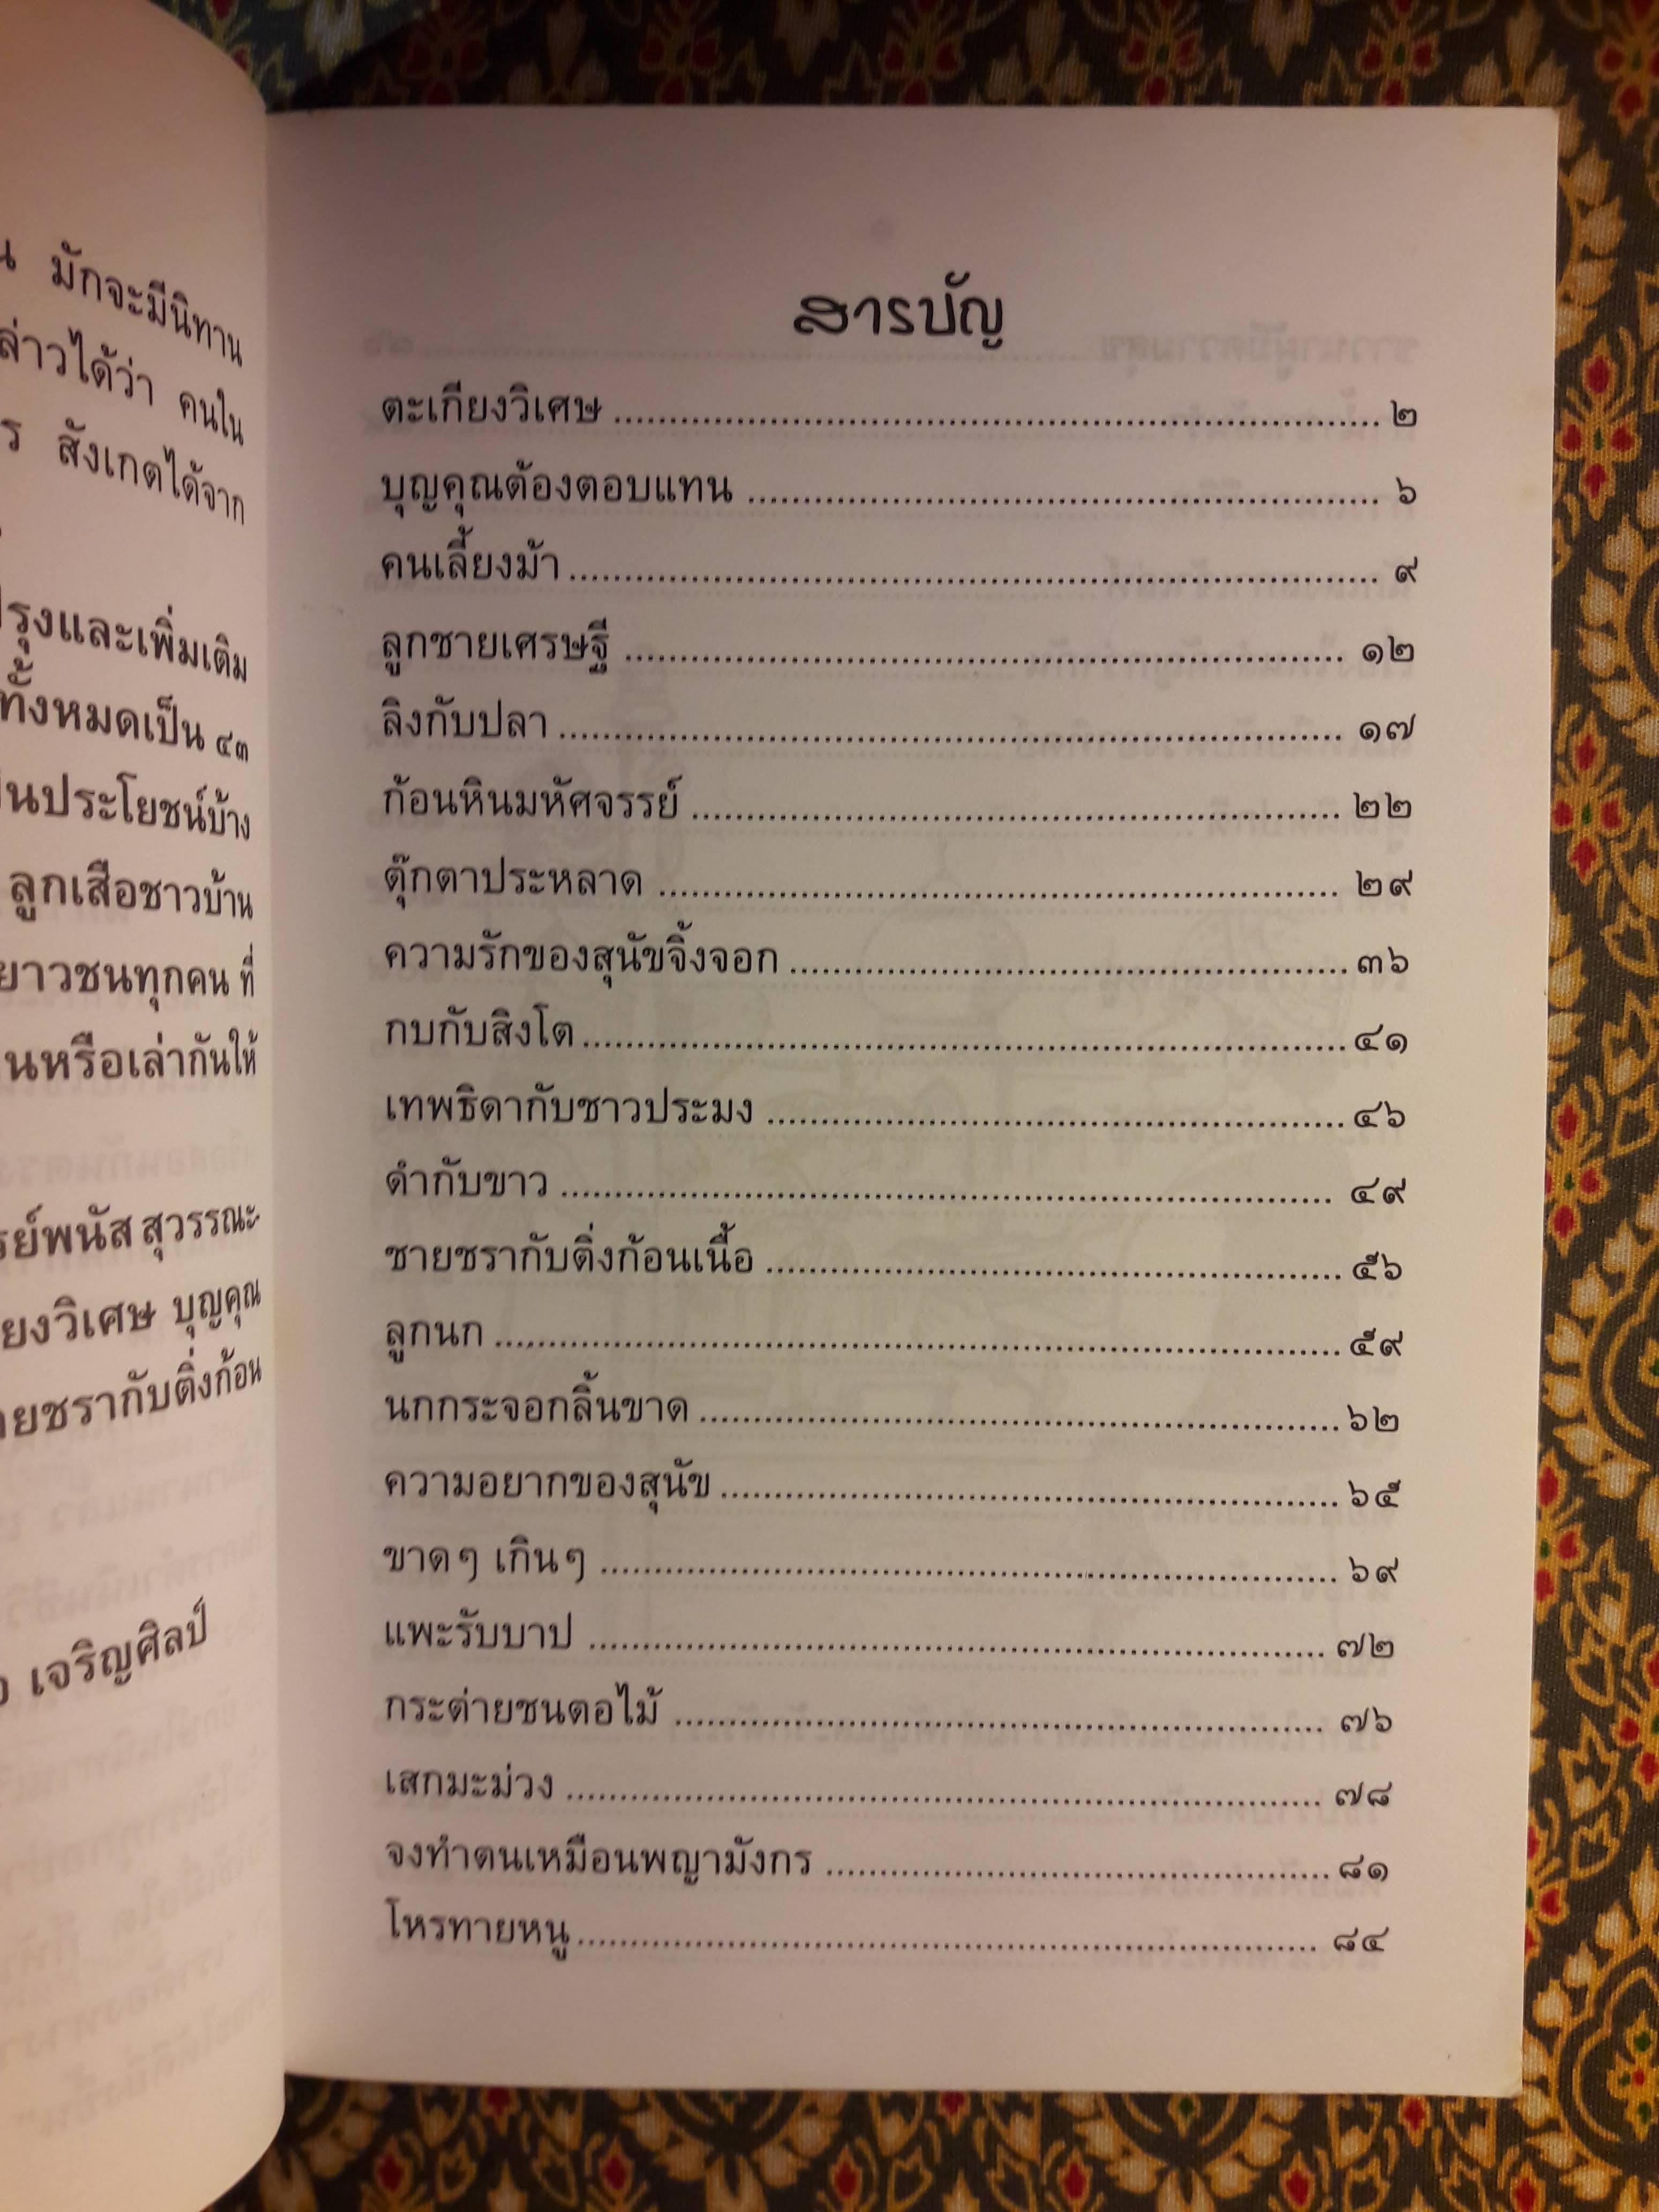 มักจะมีนิทาน
ล่าวได้ว่า คนใน
ร สังเกตได้จาก
ปรุงและเพิ่มเติม
ทั้งหมดเป็น ๔๓
ป็นประโยชน์บ้าง
ลูกเสือชาวบ้าน
ยาวชนทุกคน ที่
นหรือเล่ากันให้
รย์พนัส สุวรรณะ
ยงวิเศษ บุญคุณ
ายชรากับติ่งก้อน
เจริญศิลป์
สารบัญ
ตะเกียงวิเศษ ........ ๒
บุญคุณต้องตอบแทน ........ ๖
คนเลี้ยงม้า ........ ๙
ลูกชายเศรษฐี ........ ๑๒
ลิงกับปลา ........ ๑๗
ก้อนหินมหัศจรรย์ ........ ๒๒
ตุ๊กตาประหลาด ........ ๒๙
ความรักของสุนัขจิ้งจอก ........ ๓๖
กบกับสิงโต ........ ๔๑
เทพธิดากับชาวประมง ........ ๔๖
ดำกับขาว ........ ๔๙
ชายชรากับติ่งก้อนเนื้อ ........ ๕๖
ลูกนก ........ ๕๙
นกกระจอกลิ้นขาด ........ ๖๒
ความอยากของสุนัข ........ ๖๕
ขาดๆ เกินๆ ........ ๖๙
แพะรับบาป ........ ๗๒
กระต่ายชนตอไม้ ........ ๗๖
เสกมะม่วง ........ ๗๘
จงทำตนเหมือนพญามังกร ........ ๘๑
โหรทายหนู ........ ๘๔